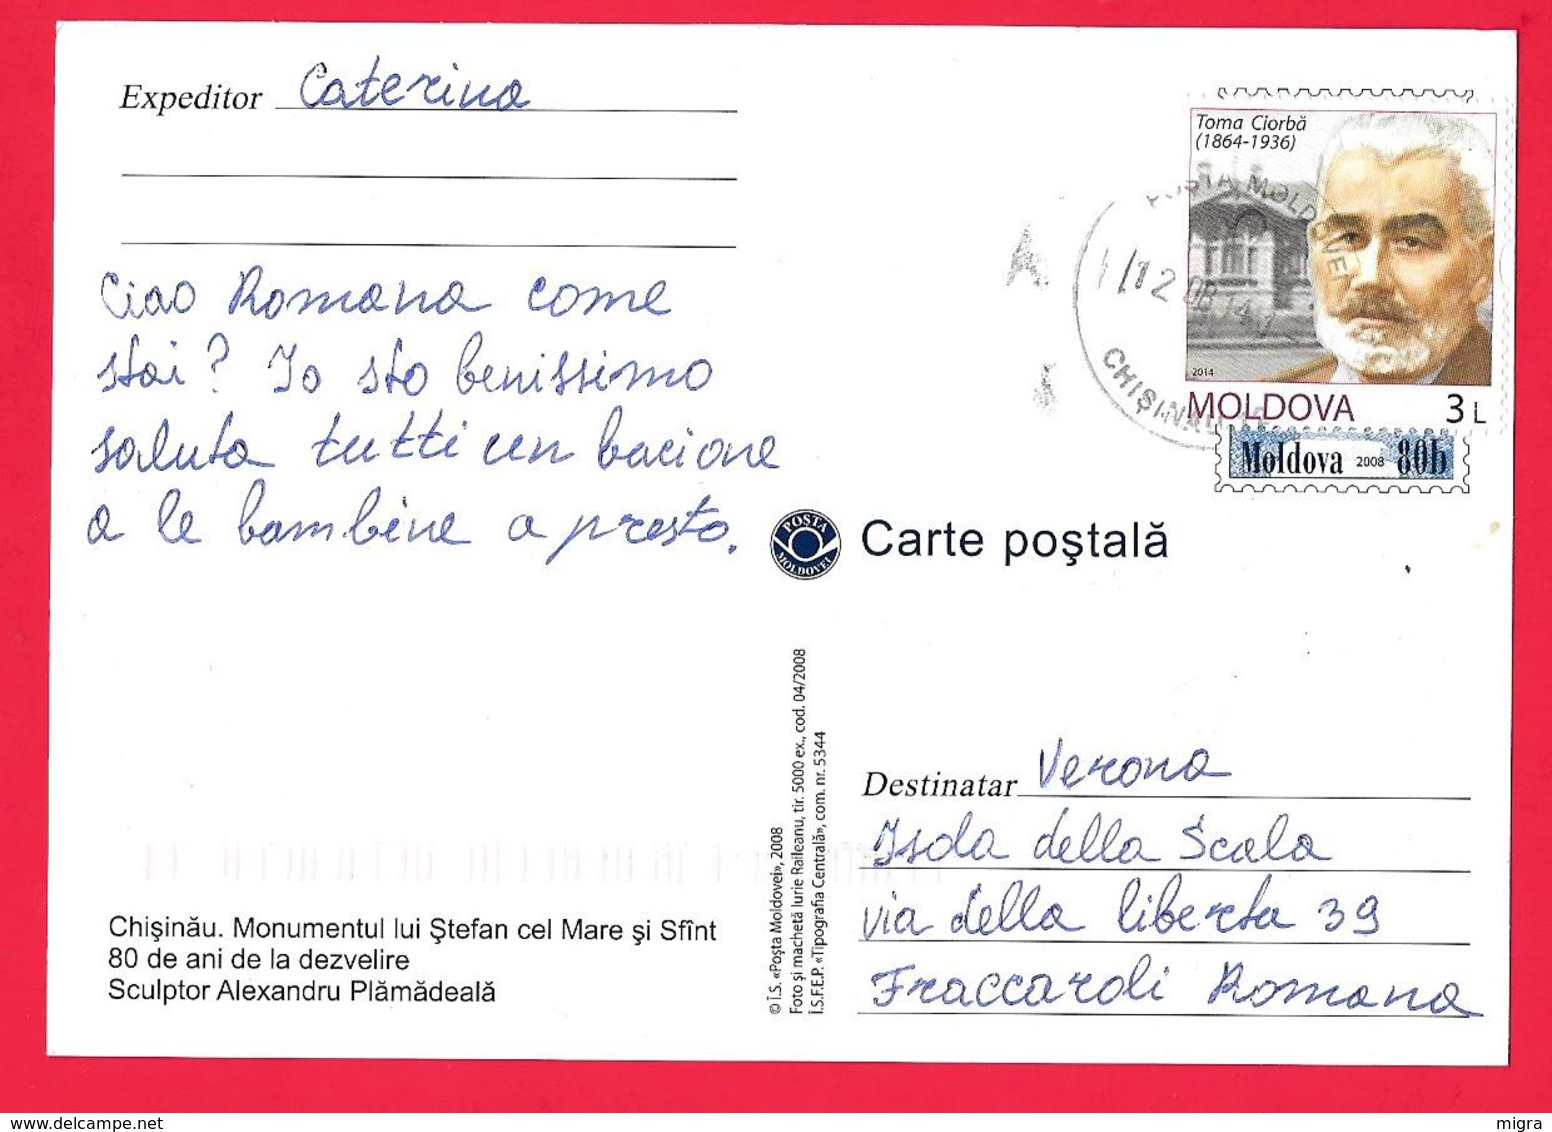 Expeditor Caterina
Ciao Romana come
stai? Io sto benissimo
saluta tutti un bacione
a le bambine a presto.
Toma Ciorbă
(1864-1936)
POȘTA MOLDOVEI
12 08 14
CHIȘINĂU
2014
MOLDOVA 3 L
Moldova 2008 80b
POȘTA
MOLDOVEI
Carte poştală
© Î.S. «Poşta Moldovei», 2008
Foto şi machetă Iurie Raileanu, tir. 5000 ex., cod. 04/2008
Î.S.F.E.P. «Tipografia Centrală», com. nr. 5344
Destinatar Verona
Isola della Scala
via della liberta 39
Fraccaroli Romana
Chişinău. Monumentul lui Ştefan cel Mare şi Sfînt
80 de ani de la dezvelire
Sculptor Alexandru Plămădeală
www.delcampe.net
migra